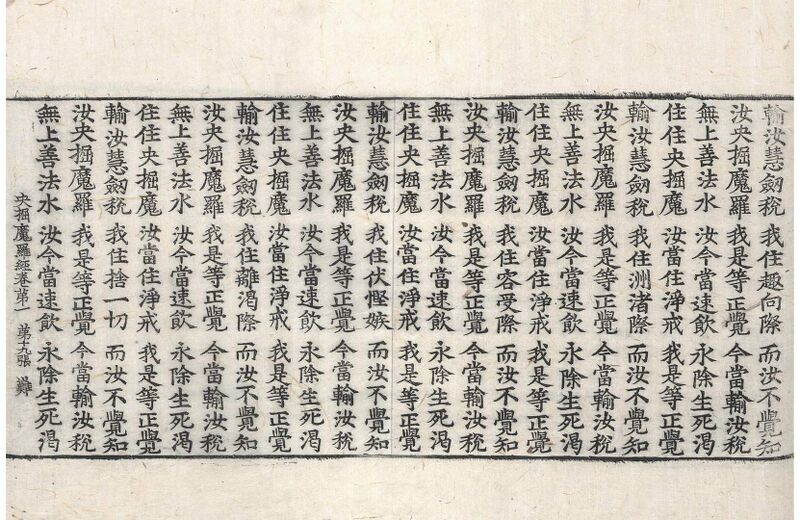 輸汝慧劒稅 我住趣向際 而汝不覺知
汝央掘魔羅 我是等正覺 今當輸汝稅
無上善法水 汝今當速飲 永除生死渴
住住央掘魔 汝當住淨戒 我是等正覺
輸汝慧劒稅 我住洲渚際 而汝不覺知
汝央掘魔羅 我是等正覺 今當輸汝稅
無上善法水 汝今當速飲 永除生死渴
住住央掘魔 汝當住淨戒 我是等正覺
輸汝慧劒稅 我住容受際 而汝不覺知
汝央掘魔羅 我是等正覺 今當輸汝稅
無上善法水 汝今當速飲 永除生死渴
住住央掘魔 汝當住淨戒 我是等正覺
輸汝慧劒稅 我住伏慳嫉 而汝不覺知
汝央掘魔羅 我是等正覺 今當輸汝稅
無上善法水 汝今當速飲 永除生死渴
住住央掘魔 汝當住淨戒 我是等正覺
輸汝慧劒稅 我住離渴際 而汝不覺知
汝央掘魔羅 我是等正覺 今當輸汝稅
無上善法水 汝今當速飲 永除生死渴
住住央掘魔 汝當住淨戒 我是等正覺
輸汝慧劒稅 我住捨一切 而汝不覺知
汝央掘魔羅 我是等正覺 今當輸汝稅
無上善法水 汝今當速飲 永除生死渴
央掘魔羅經卷第一 第十九張 難